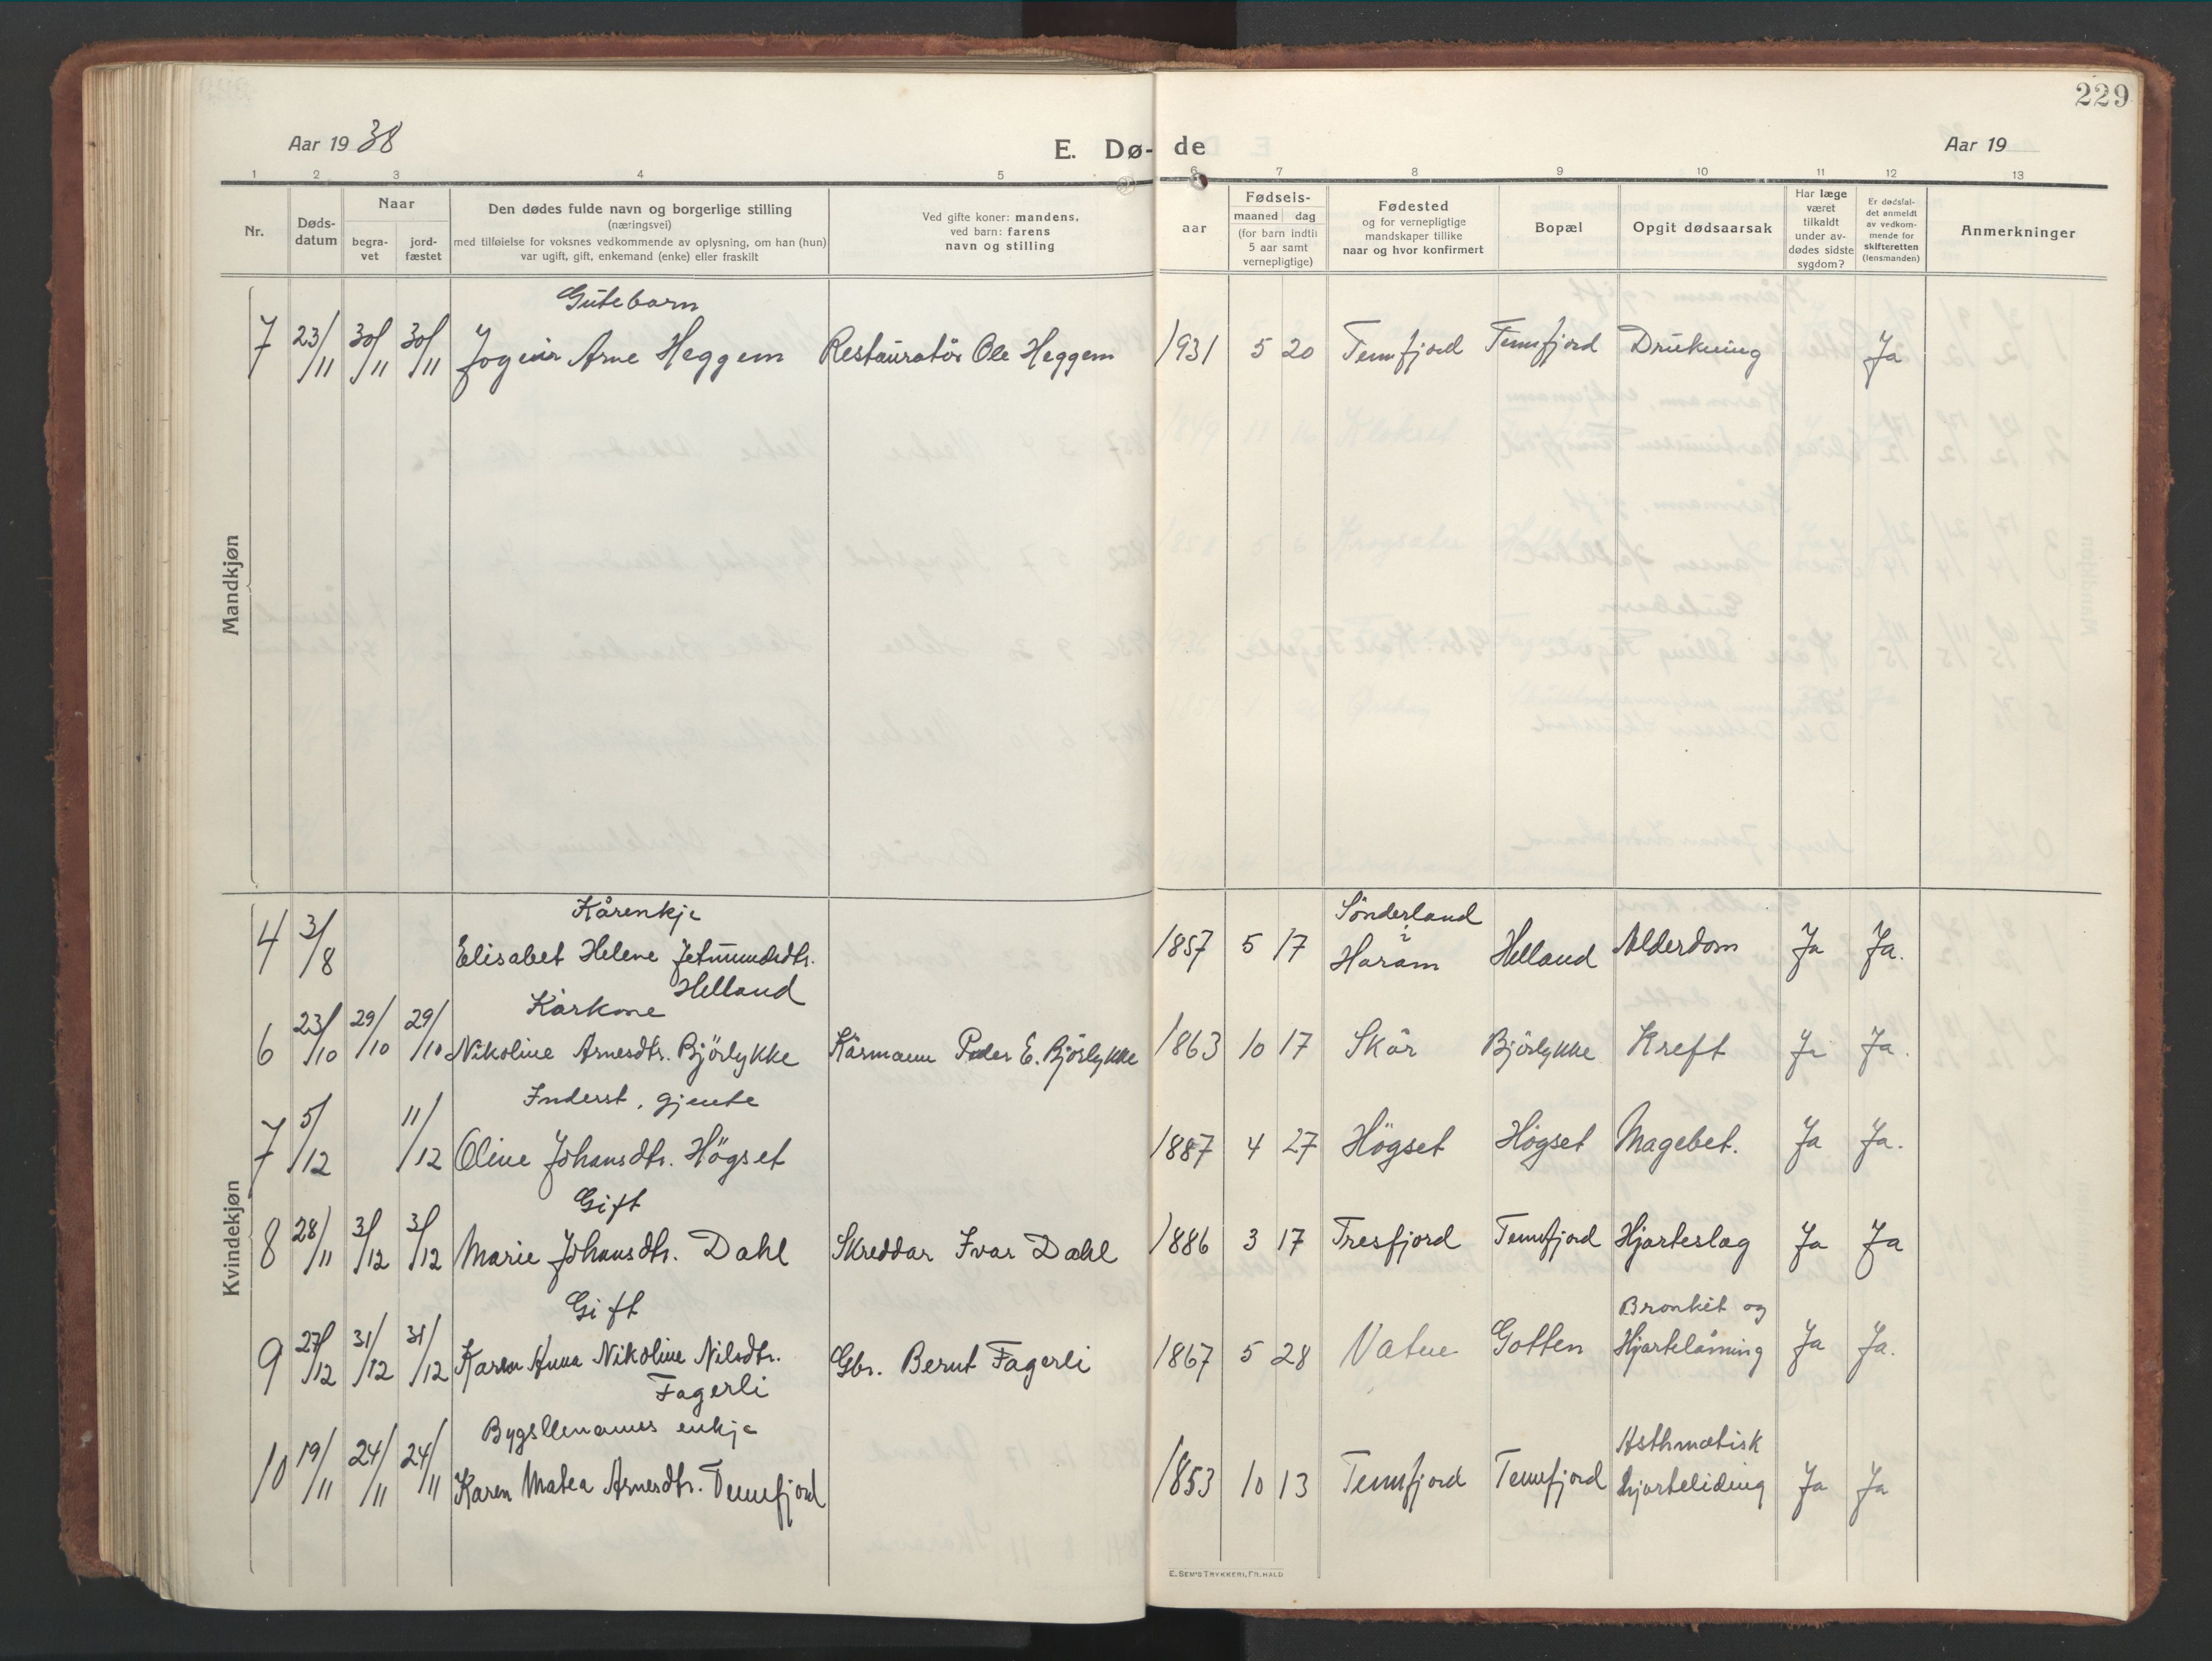 229
Aar 19 38
E. Dø- de
Aar 19
1 2 3 4 5 6 7 8 9 10 11 12 13
Nr.
Døds-
datum
Naar
begra-
vet
jord-
fæstet
Den dødes fulde navn og borgerlige stilling
(næringsvei)
med tilføielse for voksnes vedkommende av oplysning, om han (hun)
var ugift, gift, enkemand (enke) eller fraskilt
Ved gifte koner: mandens,
ved barn: farens
navn og stilling
Fødsels-
aar
maaned dag
(for barn indtil
5 aar samt
vernepligtige)
Fødested
og for vernepligtige
mandskaper tillike
naar og hvor konfirmert
Bopæl
Opgit dødsaarsak
Har læge
været
tilkaldt
under av-
dødes sidste
sygdom?
Er dødsfal-
det anmeldt
av vedkom-
mende for
skifteretten
(lensmanden)
Anmerkninger
Mandkjøn
Gutebarn
7 23/11 30/11 30/11 Jogeir Arne Heggem Restauratör Ole Heggem 1931 5 20 Tennfjord Tennfjord Drukning Ja
Kvindekjøn
Kårenkje Sönderland
4 3/8 Elisabet Helene Jetmundsdtr. 1857 5 17 i Haram Helland Alderdom Ja Ja.
Helland
Kårkone
6 23/10 29/10 29/10 Nikoline Arnesdtr. Björlykke Kårmann Peder E. Björlykke 1863 10 17 Skår Björlykke Kreft Ja Ja.
Inderst, gjente
7 5/12 11/12 Oline Johansdtr. Högset 1887 4 27 Högset Högset Magebet. Ja Ja.
Gift
8 28/11 3/12 3/12 Marie Johansdtr. Dahl Skreddar Ivar Dahl 1886 3 17 Tresfjord Tennfjord Hjarteslag Ja Ja
Gift Bronkit og
9 27/12 31/12 31/12 Karen Anna Nikoline Nilsdtr. Gbr. Bernt Fagerli 1867 5 28 Vatne Gotten Hjartelåming Ja Ja.
Fagerli
Bygsllemanns enkje Asthmatisk
10 19/11 24/11 24/11 Karen Matea Arnesdtr. Tennfjord 1853 10 13 Tennfjord Tennfjord hjarteliding Ja Ja
E. SEM'S TRYKKERI, FR.HALD